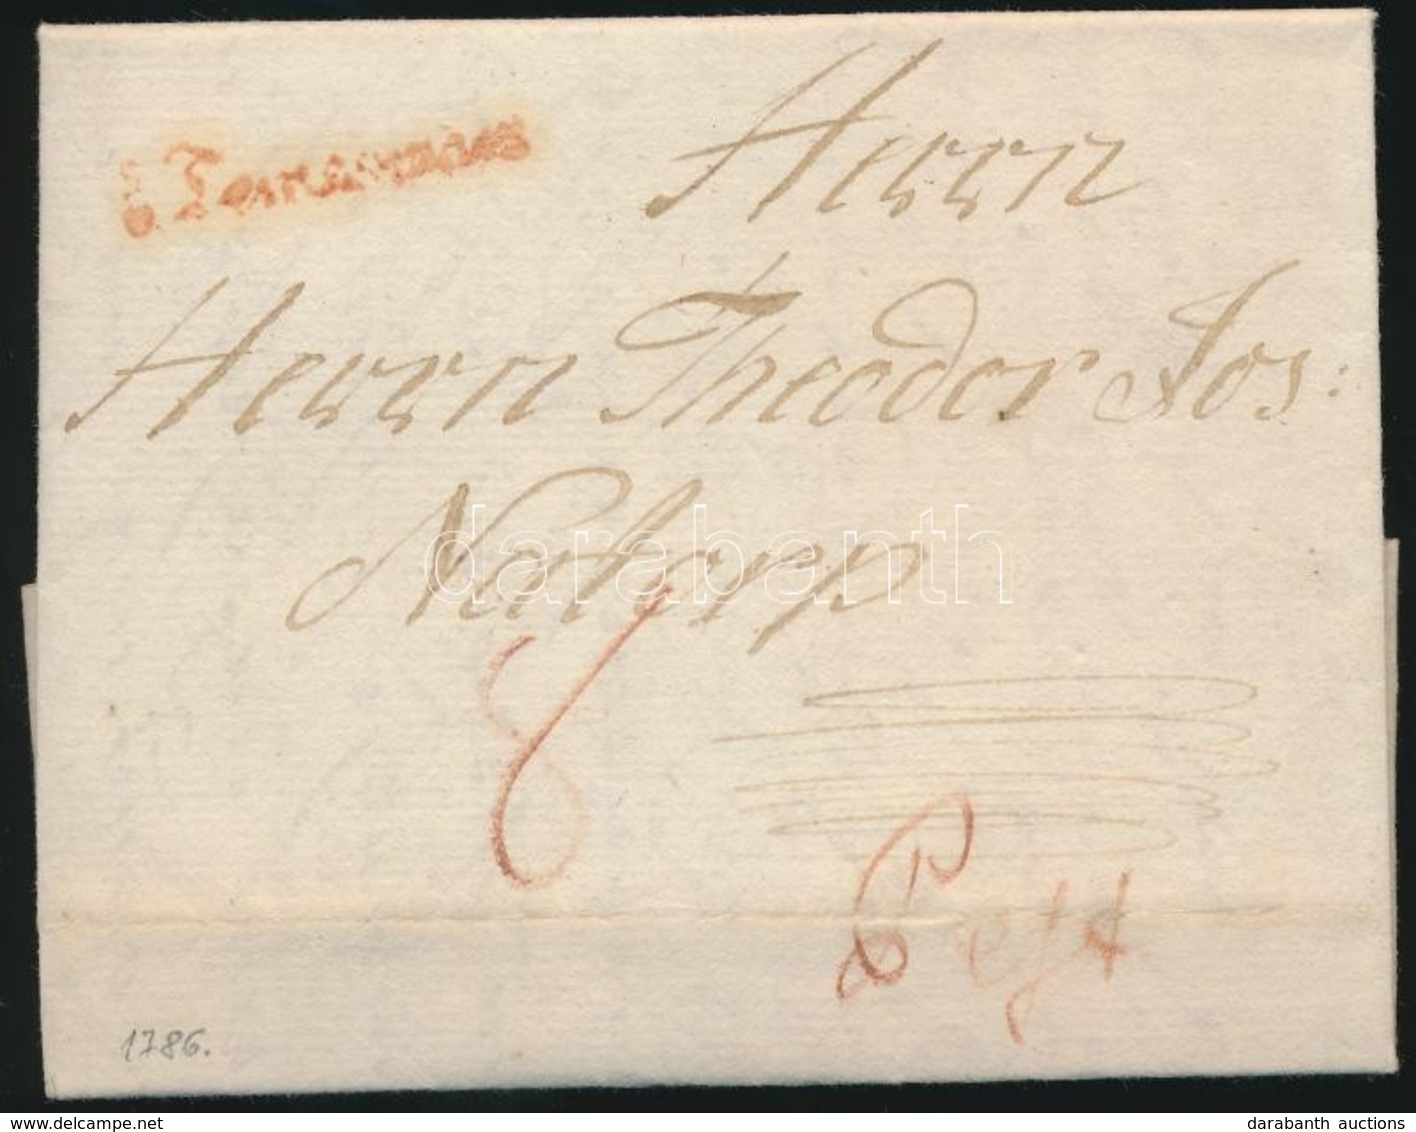 Herrn
Herrn Theodor Jos:
Natorp
darabanth
8
Pest
1786.
delcampe.net
darabanth auctions